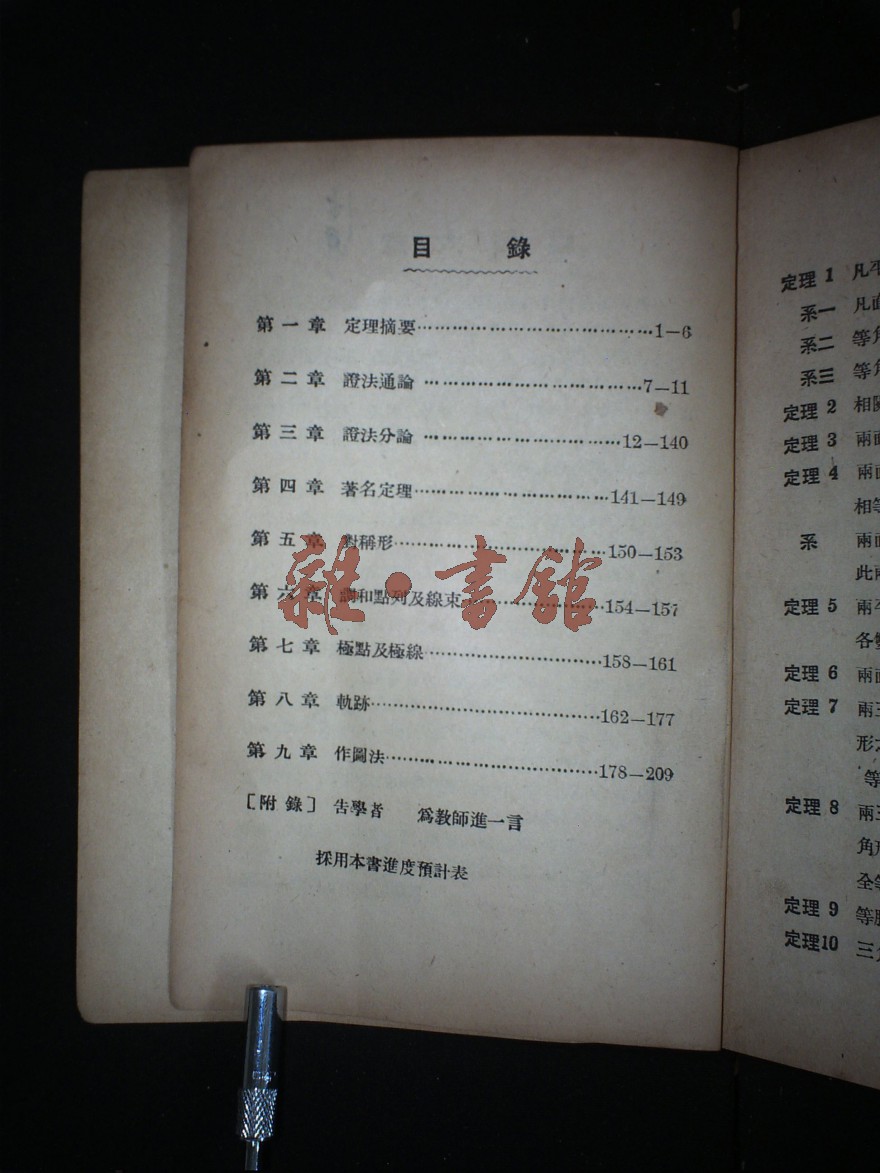 目 錄
第一章 定理摘要……………………………………1—6
第二章 證法通論……………………………………7—11
第三章 證法分論……………………………………12—140
第四章 著名定理……………………………………141—149
第五章 對稱形……………………………………150—153
第六章 調和點列及線束……………………………154—157
第七章 極點及極線…………………………………158—161
第八章 軌跡……………………………………162—177
第九章 作圖法……………………………………178—209
〔附錄〕 告學者 爲教師進一言
採用本書進度預計表
雜·書館
定理 1 凡
系一 凡直
系二 等角
系三 等角
定理 2 相
定理 3 兩直
定理 4 兩直
相等
系 兩直
此兩
定理 5 兩平
各
定理 6 兩直
定理 7 兩三
形
等
定理 8 兩三
角形
全等
定理 9 等腰
定理10 三角